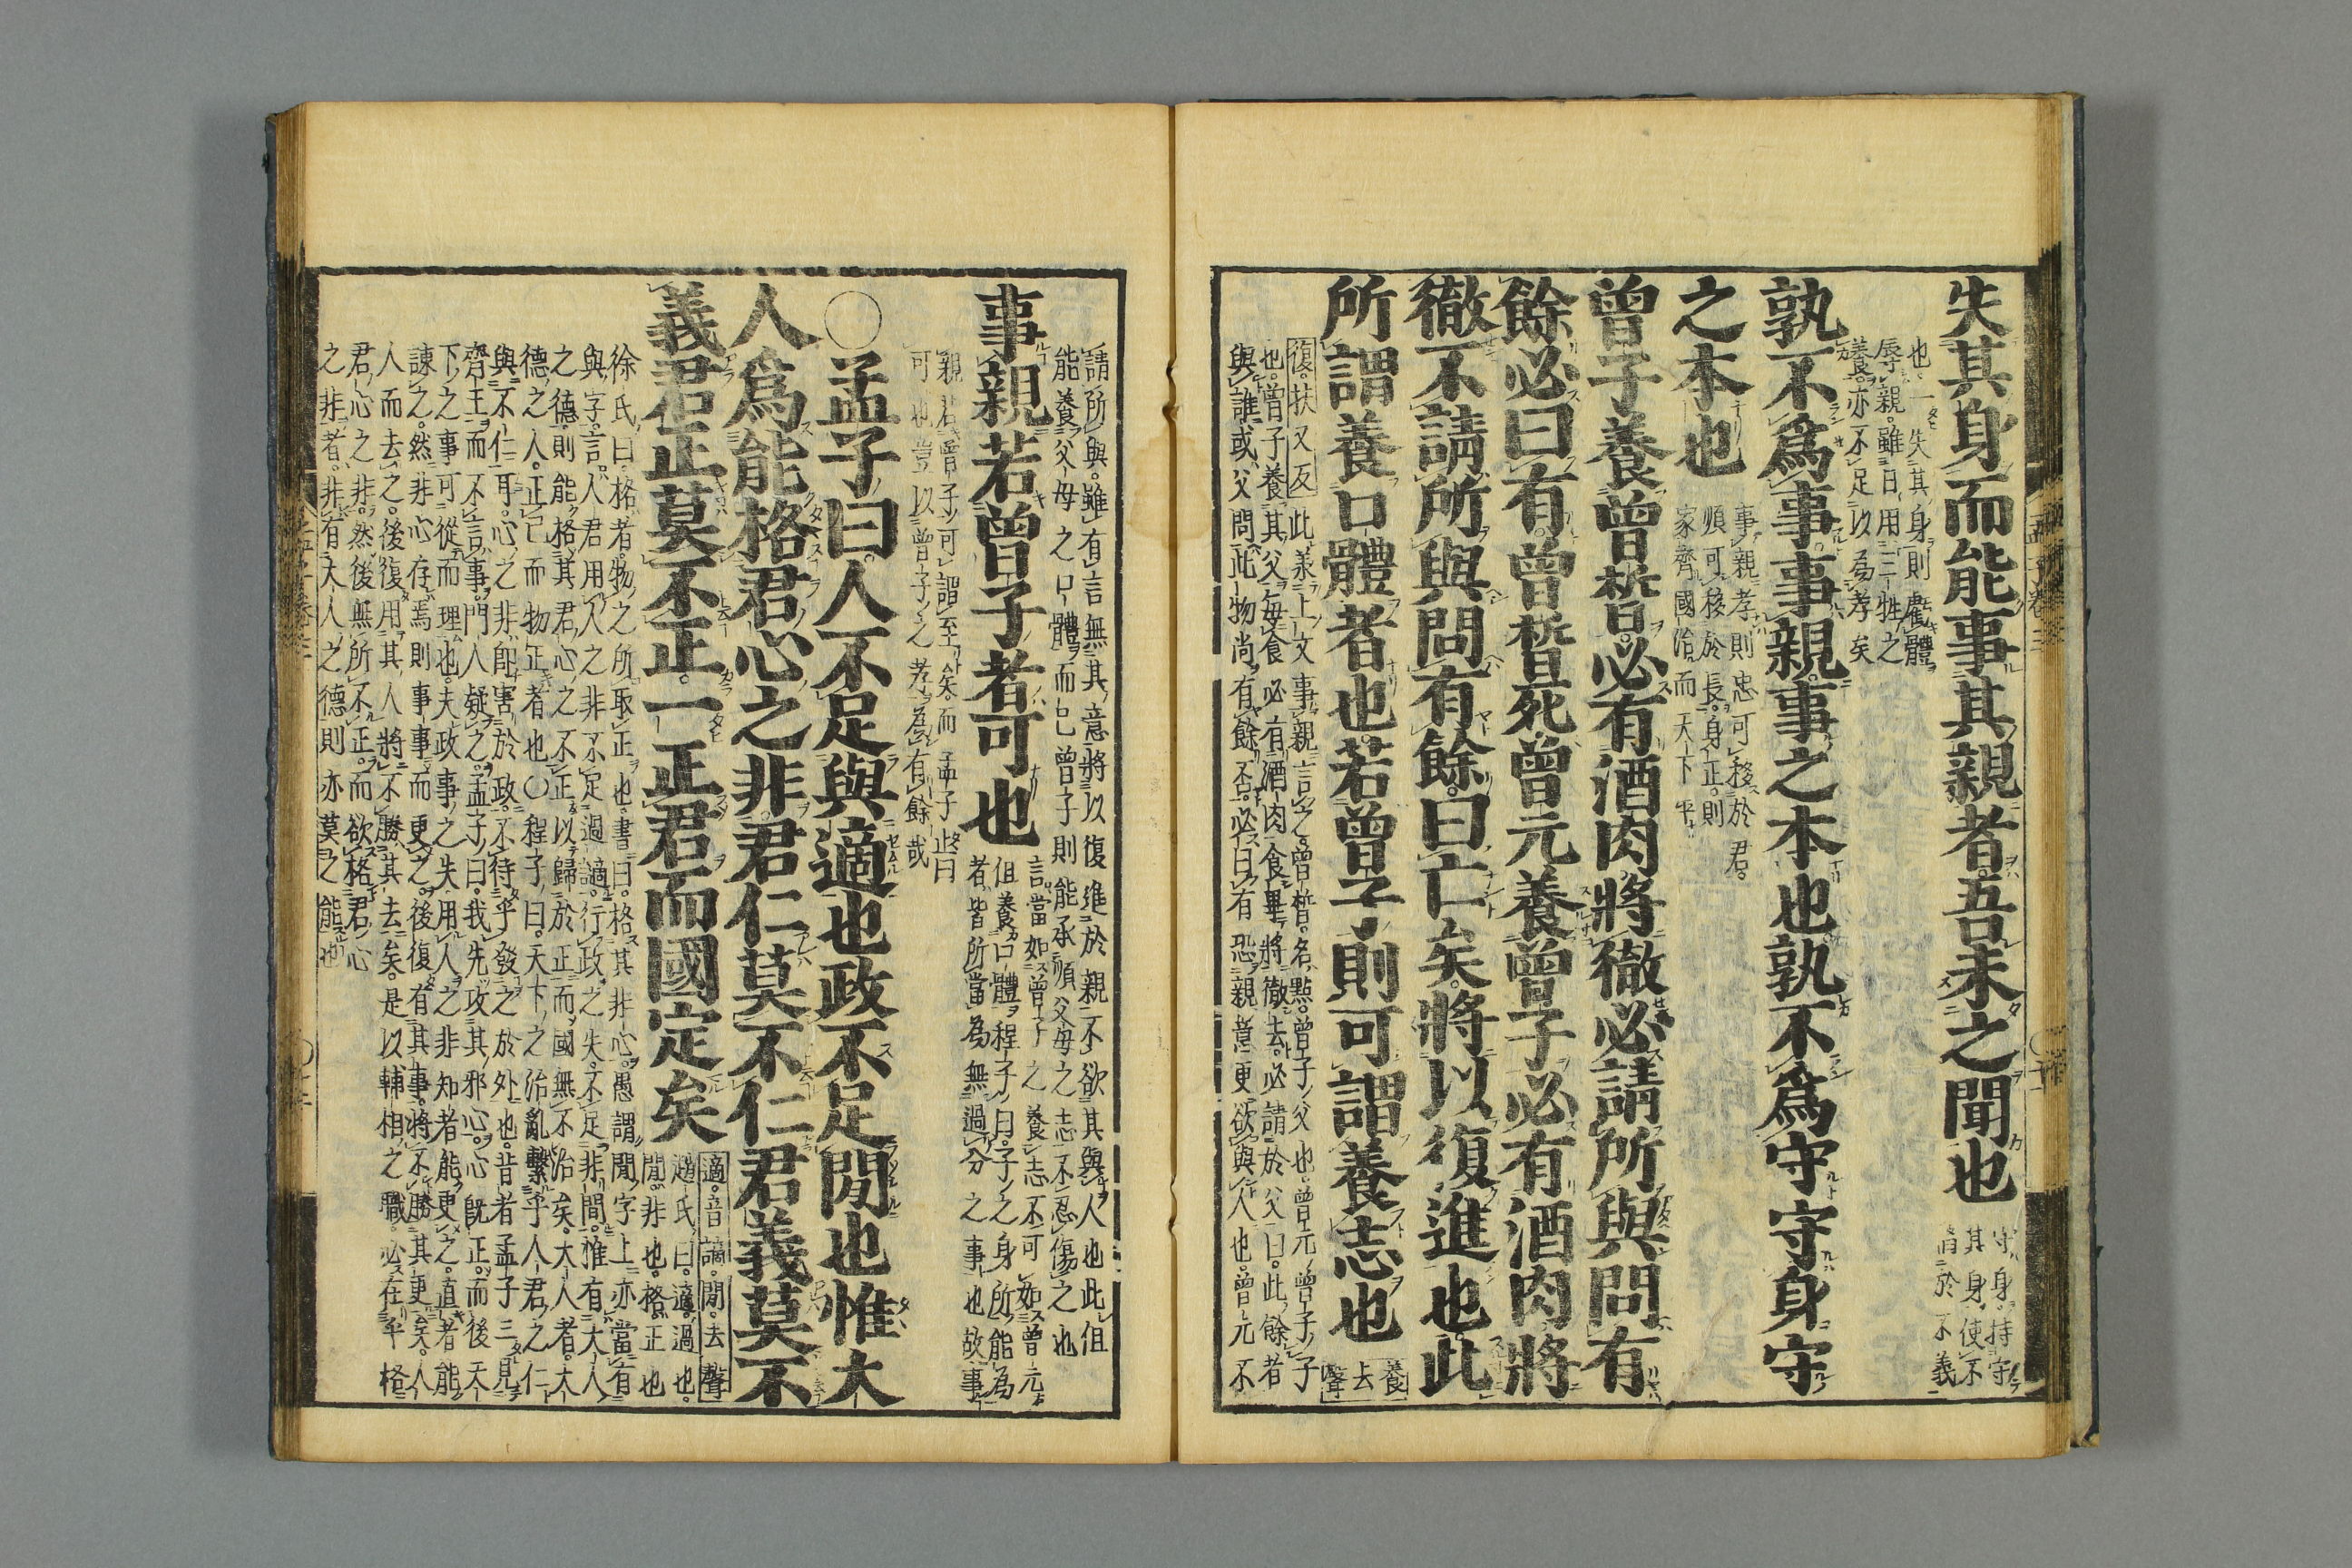 失其身而能事其親者吾未之聞也
守身持守
其身使不
陷於不義
也一失其身則虧體
辱親雖日用三牲之
養亦不足以為孝矣
孰不爲事事親事之本也孰不爲守守身守
之本也
事親孝則忠可移於君
順可移於長身正則
家齊國治而天下平
曾子養曾晳必有酒肉將徹必請所與問有
餘必曰有曾晳死曾元養曾子必有酒肉將
徹不請所與問有餘曰亡矣將以復進也此
所謂養口體者也若曾子則可謂養志也
養
去
聲
復扶又反此承上文事親言之曾晳名點曾子父也曾元曾子子
也曾子養其父每食必有酒肉食畢將徹去必請於父曰此餘者
與誰或父問此物尚有餘否必曰有恐親意更欲與人也曾元不
請所與雖有言無其意將以復進於親不欲其與人也此但
能養父母之口體而已曾子則能承順父母之志不忍傷之也
事親若曾子者可也
言當如曾子之養志不可如曾元
但養口體程子曰子之身所能為
者皆所當為無過分之事也故事
親若曾子可謂至矣而孟子止曰
可也豈以曾子之孝為有餘哉
○孟子曰人不足與適也政不足閒也惟大
人爲能格君心之非君仁莫不仁君義莫不
義君正莫不正一正君而國定矣
適音謫閒去聲
趙氏曰適過也
閒非也格正也
徐氏曰格者物之所取正也書曰格其非心愚謂閒字上亦當有
與字言人君用人之非不足過謫行政之失不足非間惟有大人
之德則能格其君心之不正以歸於正而國無不治矣大人者大
德之人正己而物正者也○程子曰天下之治亂繫乎人君之仁
與不仁耳心之非卽害於政不待乎發之於外也昔者孟子三見
齊王而不言事門人疑之孟子曰我先攻其邪心心旣正而後天
下之事可從而理也夫政事之失用人之非知者能更之直者能
諫之然非心存焉則事事而更之後復有其事將不勝其更矣人
人而去之後復用其人將不勝其去矣是以輔相之職必在乎格
君心之非然後無所不正而欲格君心
之非者非有大人之德則亦莫之能也